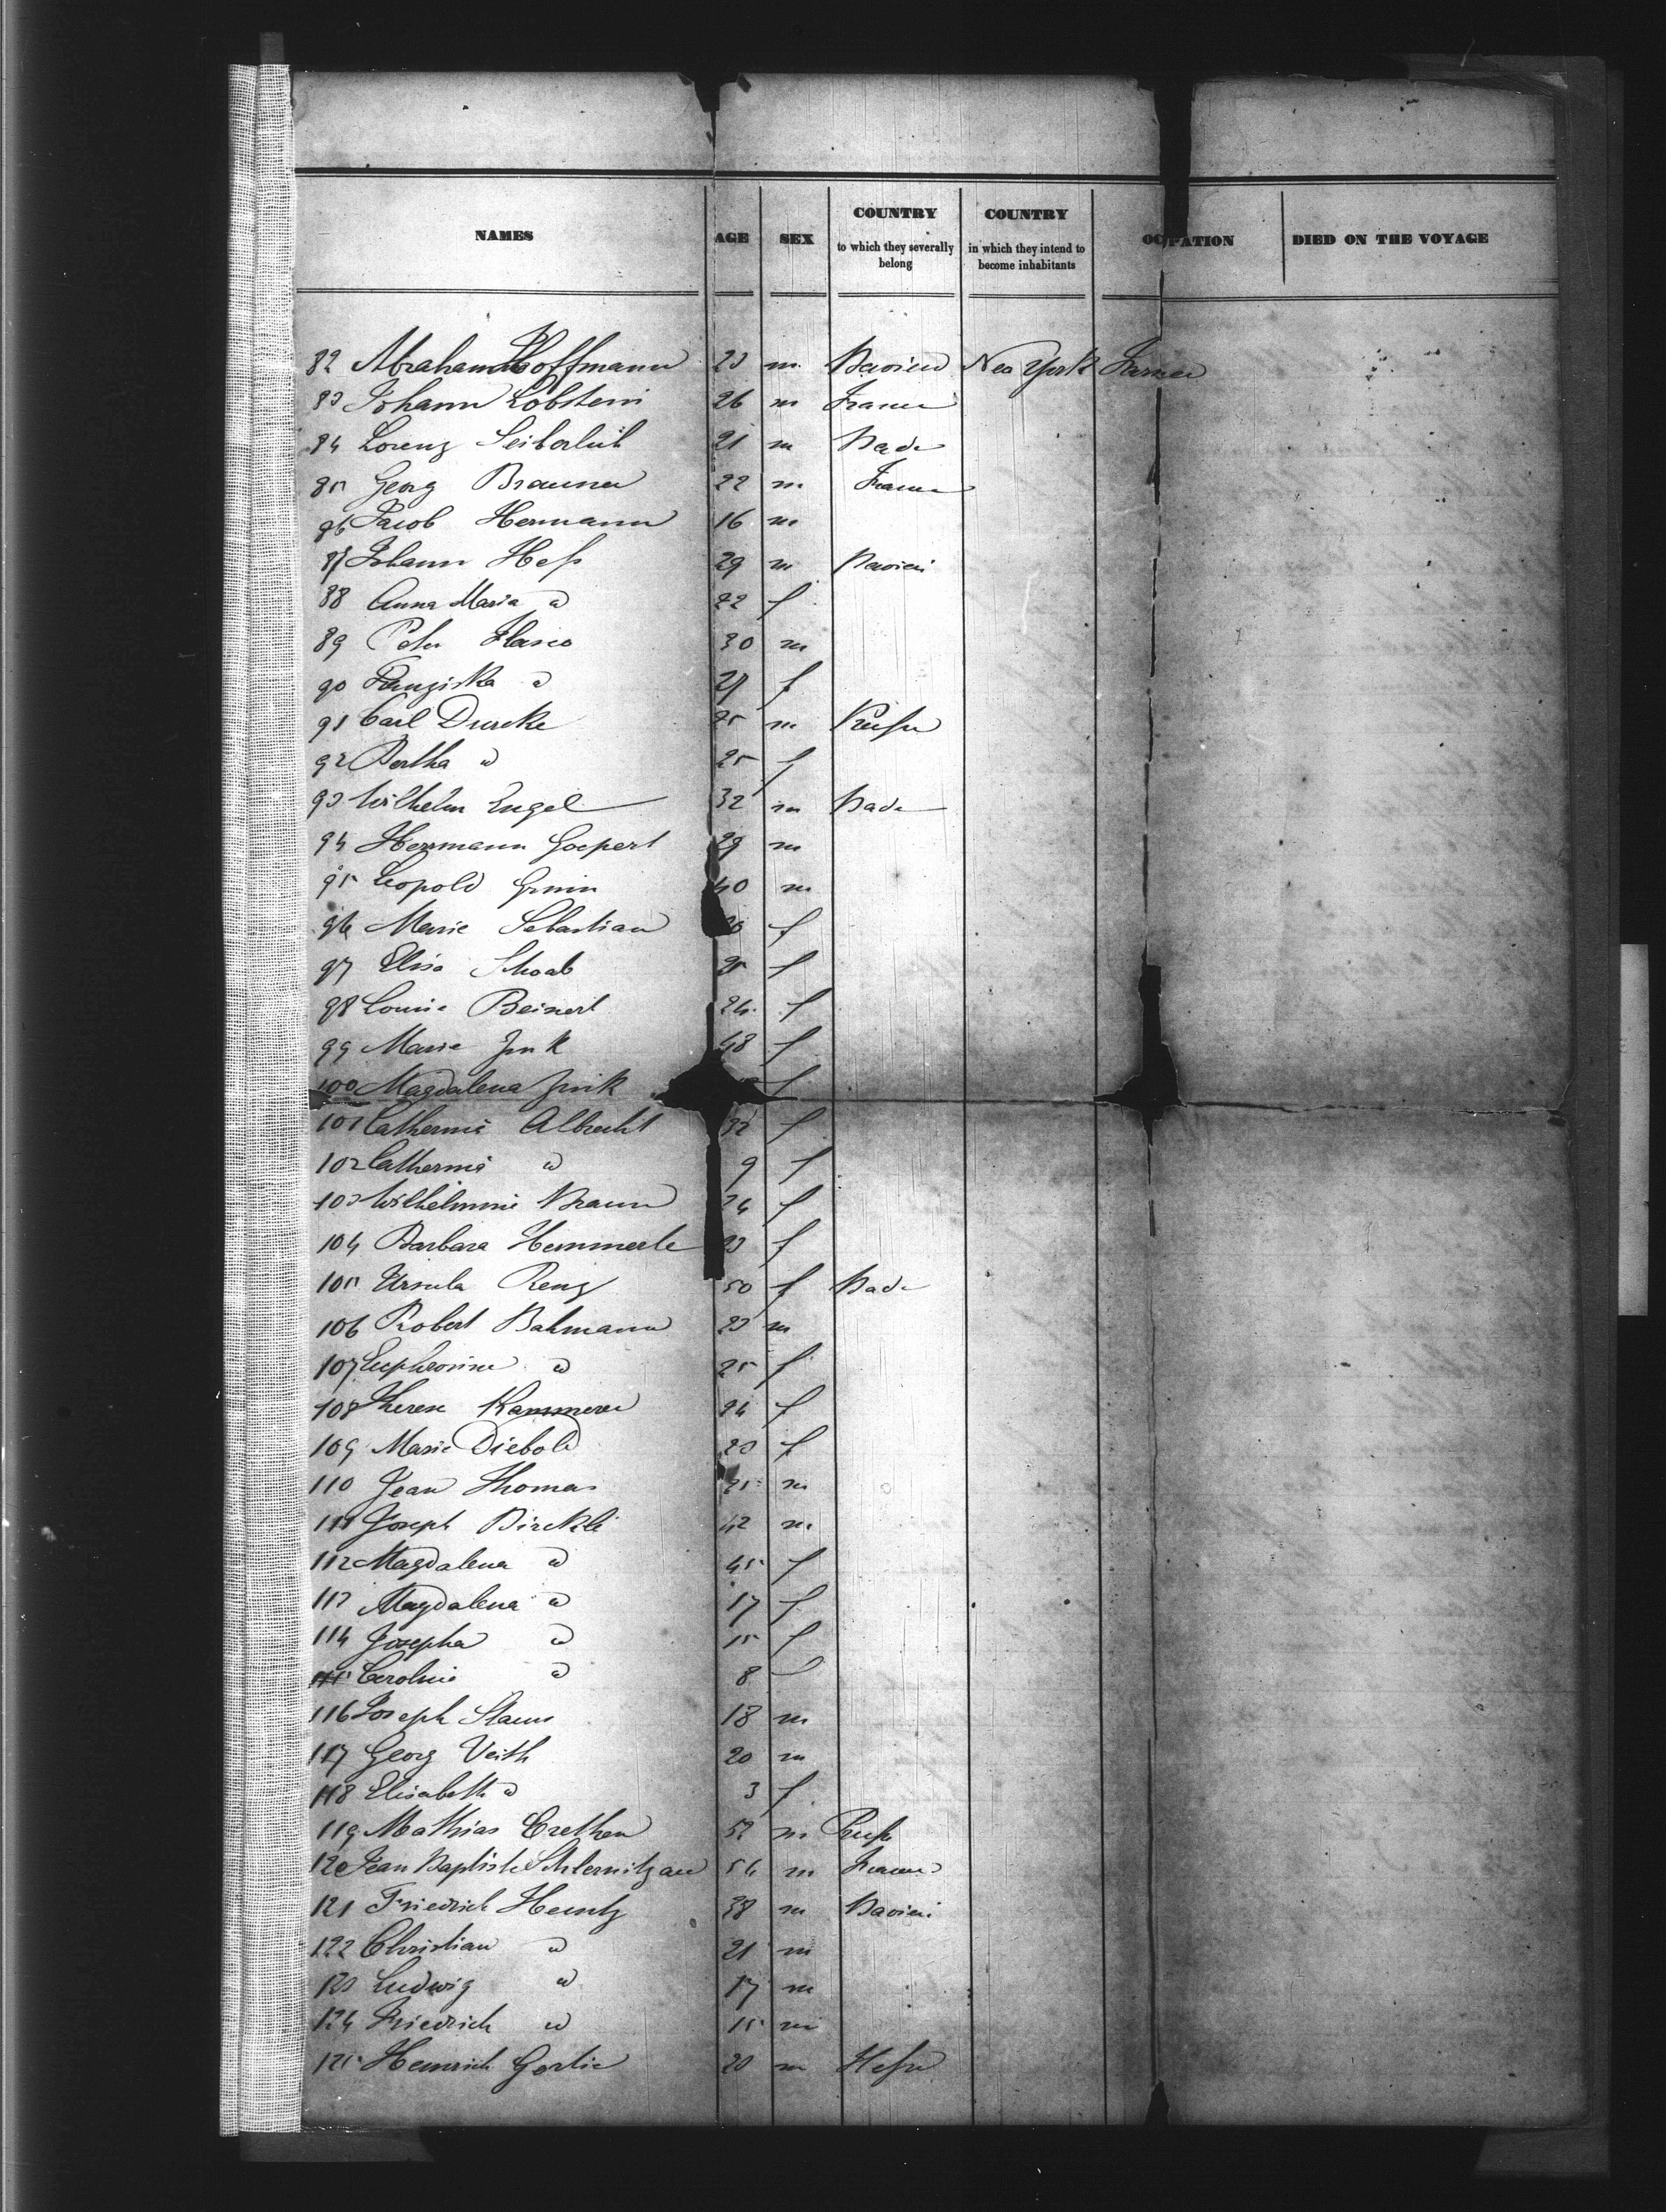 NAMES AGE SEX COUNTRY to which they severally belong COUNTRY in which they intend to become inhabitants OCPATION DIED ON THE VOYAGE
82 Abraham Hoffmann 23 m. New York Farmer
83 Johann Lobstein 26 m France
84 Lorenz 21 m Bade
85 Georg Brauner 22 m France
86 Jacob Hermann 16 m
87 Johann Heß 29 m
88 Anna Maria d 22 f
89 Peter 30 m
90 Franziska d 27 f
91 Carl Durcke 25 m
92 Bertha d 25 f
93 Wilhelm Engel 32 m Bade
94 Hermann Goepert 29 m
95 Leopold 40 m
96 Marie Sebastian f
97 Elisa Schoab 25 f
98 Louise Beinert 24 f
99 Marie Zink 48 f
100 Magdalena Zink f
101 Catherine Albrecht 32 f
102 Catherine d 9 f
103 Wilhelmine Braun 24 f
104 Barbara Hemmerle 23 f
105 Ursula Renz 50 f Bade
106 Robert Bahmann 23 m
107 Euphrosine d 25 f
108 Therese Kammerer 24 f
109 Marie Diebold 23 f
110 Jean Thomas m
111 Joseph Birckle 42 m
112 Magdalena d 45 f
113 Magdalena d 17 f
114 Josepha d 15 f
115 Caroline d 8
116 Joseph 18 m
117 Georg Veith 20 m
118 Elisabeth d 3 f
119 Mathias Crethen 52 m
120 Jean Baptiste 54 m France
121 Friedrich Heintz 38 m
122 Christian d 21 m
123 Ludwig d 17 m
124 Friedrich d 15 m
125 Heinrich 20 m